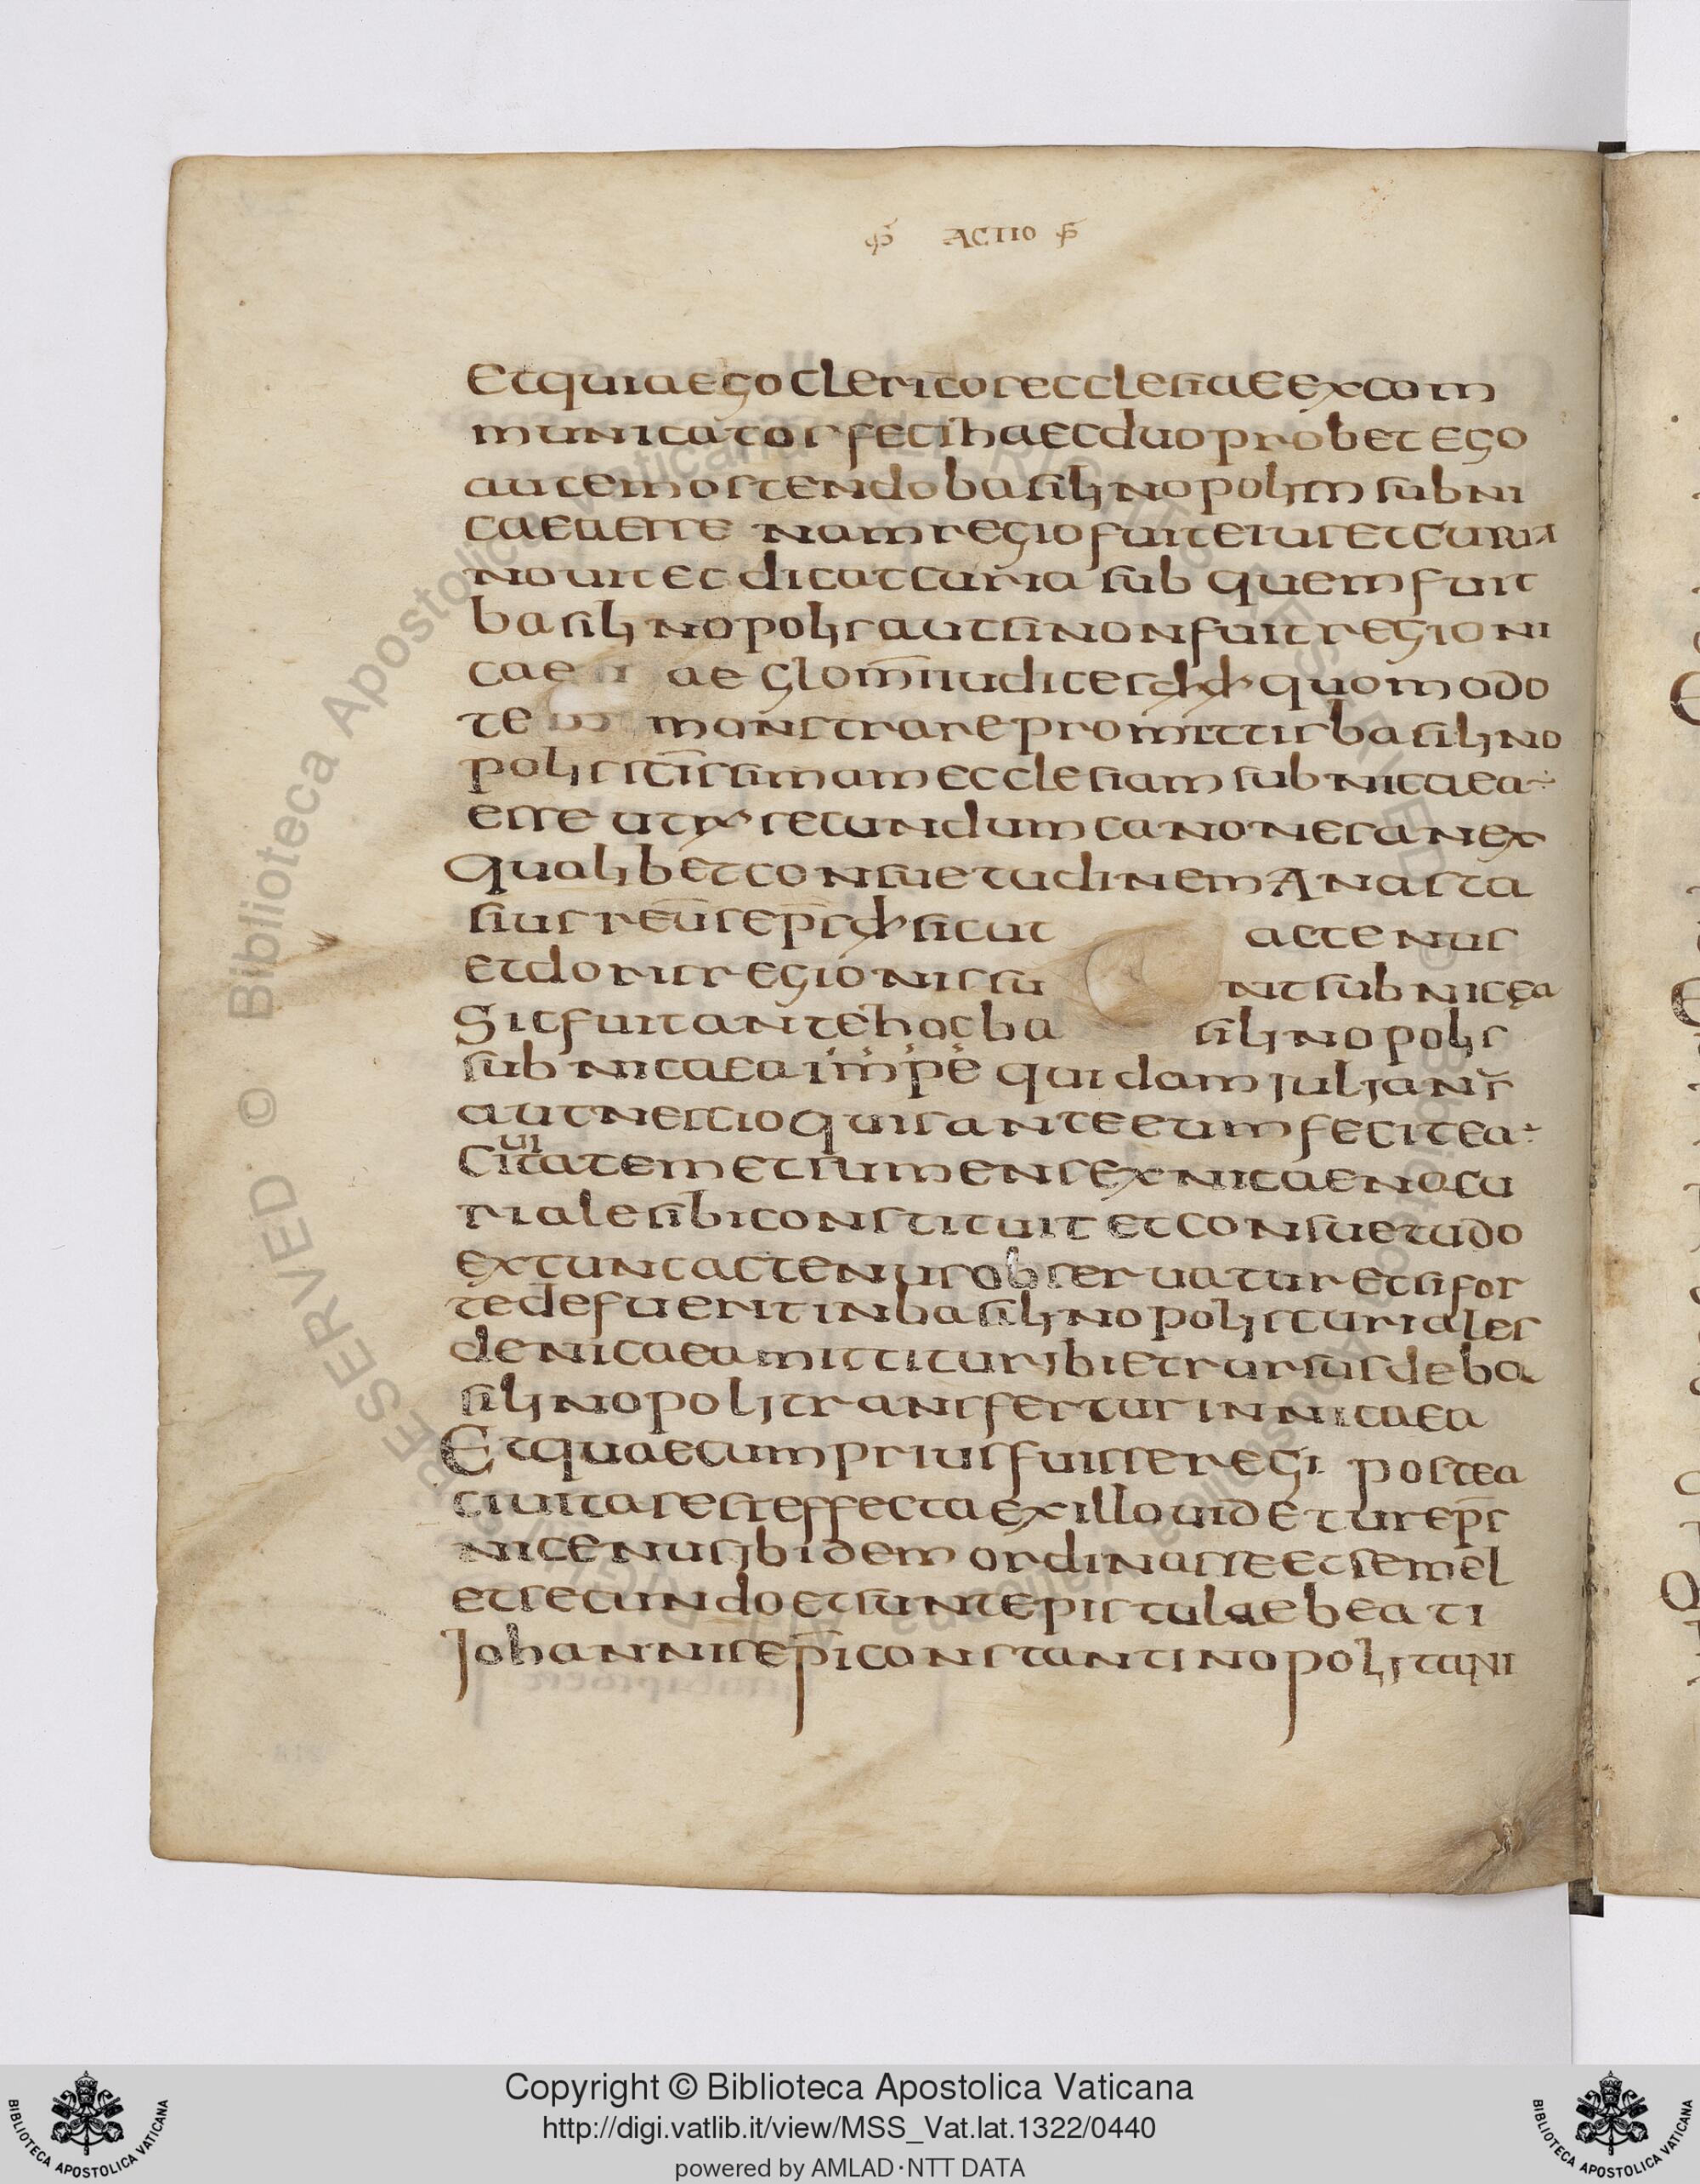 ACTIO
Et quia ego clericos ecclesiae excom
municatos feci haec duo probet ego
autem ostendo basilinopolim sub ni
caea esse nam regio fuit eius et curia
novit et dicat curia sub quem fuit
basilinopolis aut si non fuit regio ni
cae ae glom̄ iudices dd quomodo
te monstrare promittis basilino
polis sc̄issimam ecclesiam sub nicaea
esse utrū secundum canones an ex
qualibet consuetudinem Anasta
sius reūs ep̄s d sicut actenus
et doris regionis sunt sub nicęa
Sic fuit ante hoc basilinopolis
sub nicaea imp̄e quidam julianus
aut nescio quis ante eum fecit ea
Civitatem et sumens ex nicaeno cu
riale sibi constituit et consuetudo
ex tunc actenus observatur et si for
te defuerit in basilinopolis curiales
de nicaea mittitur ibi et rursus de ba
silinopoli transfertur in nicaea
Et quae cum prius fuisse regi postea
civitas est effecta ex illo videtur ep̄s
nicenus ibidem ordinasse et semel
et secundo et sunt epistulae beati
Johannis ep̄i constantinopolitani
Copyright © Biblioteca Apostolica Vaticana
http://digi.vatlib.it/view/MSS_Vat.lat.1322/0440
powered by AMLAD·NTT DATA
BIBLIOTECA APOSTOLICA VATICANA
BIBLIOTECA APOSTOLICA VATICANA